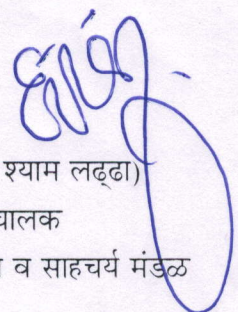 श्याम लद्ढा)
चालक
व साहचर्य मंडळ